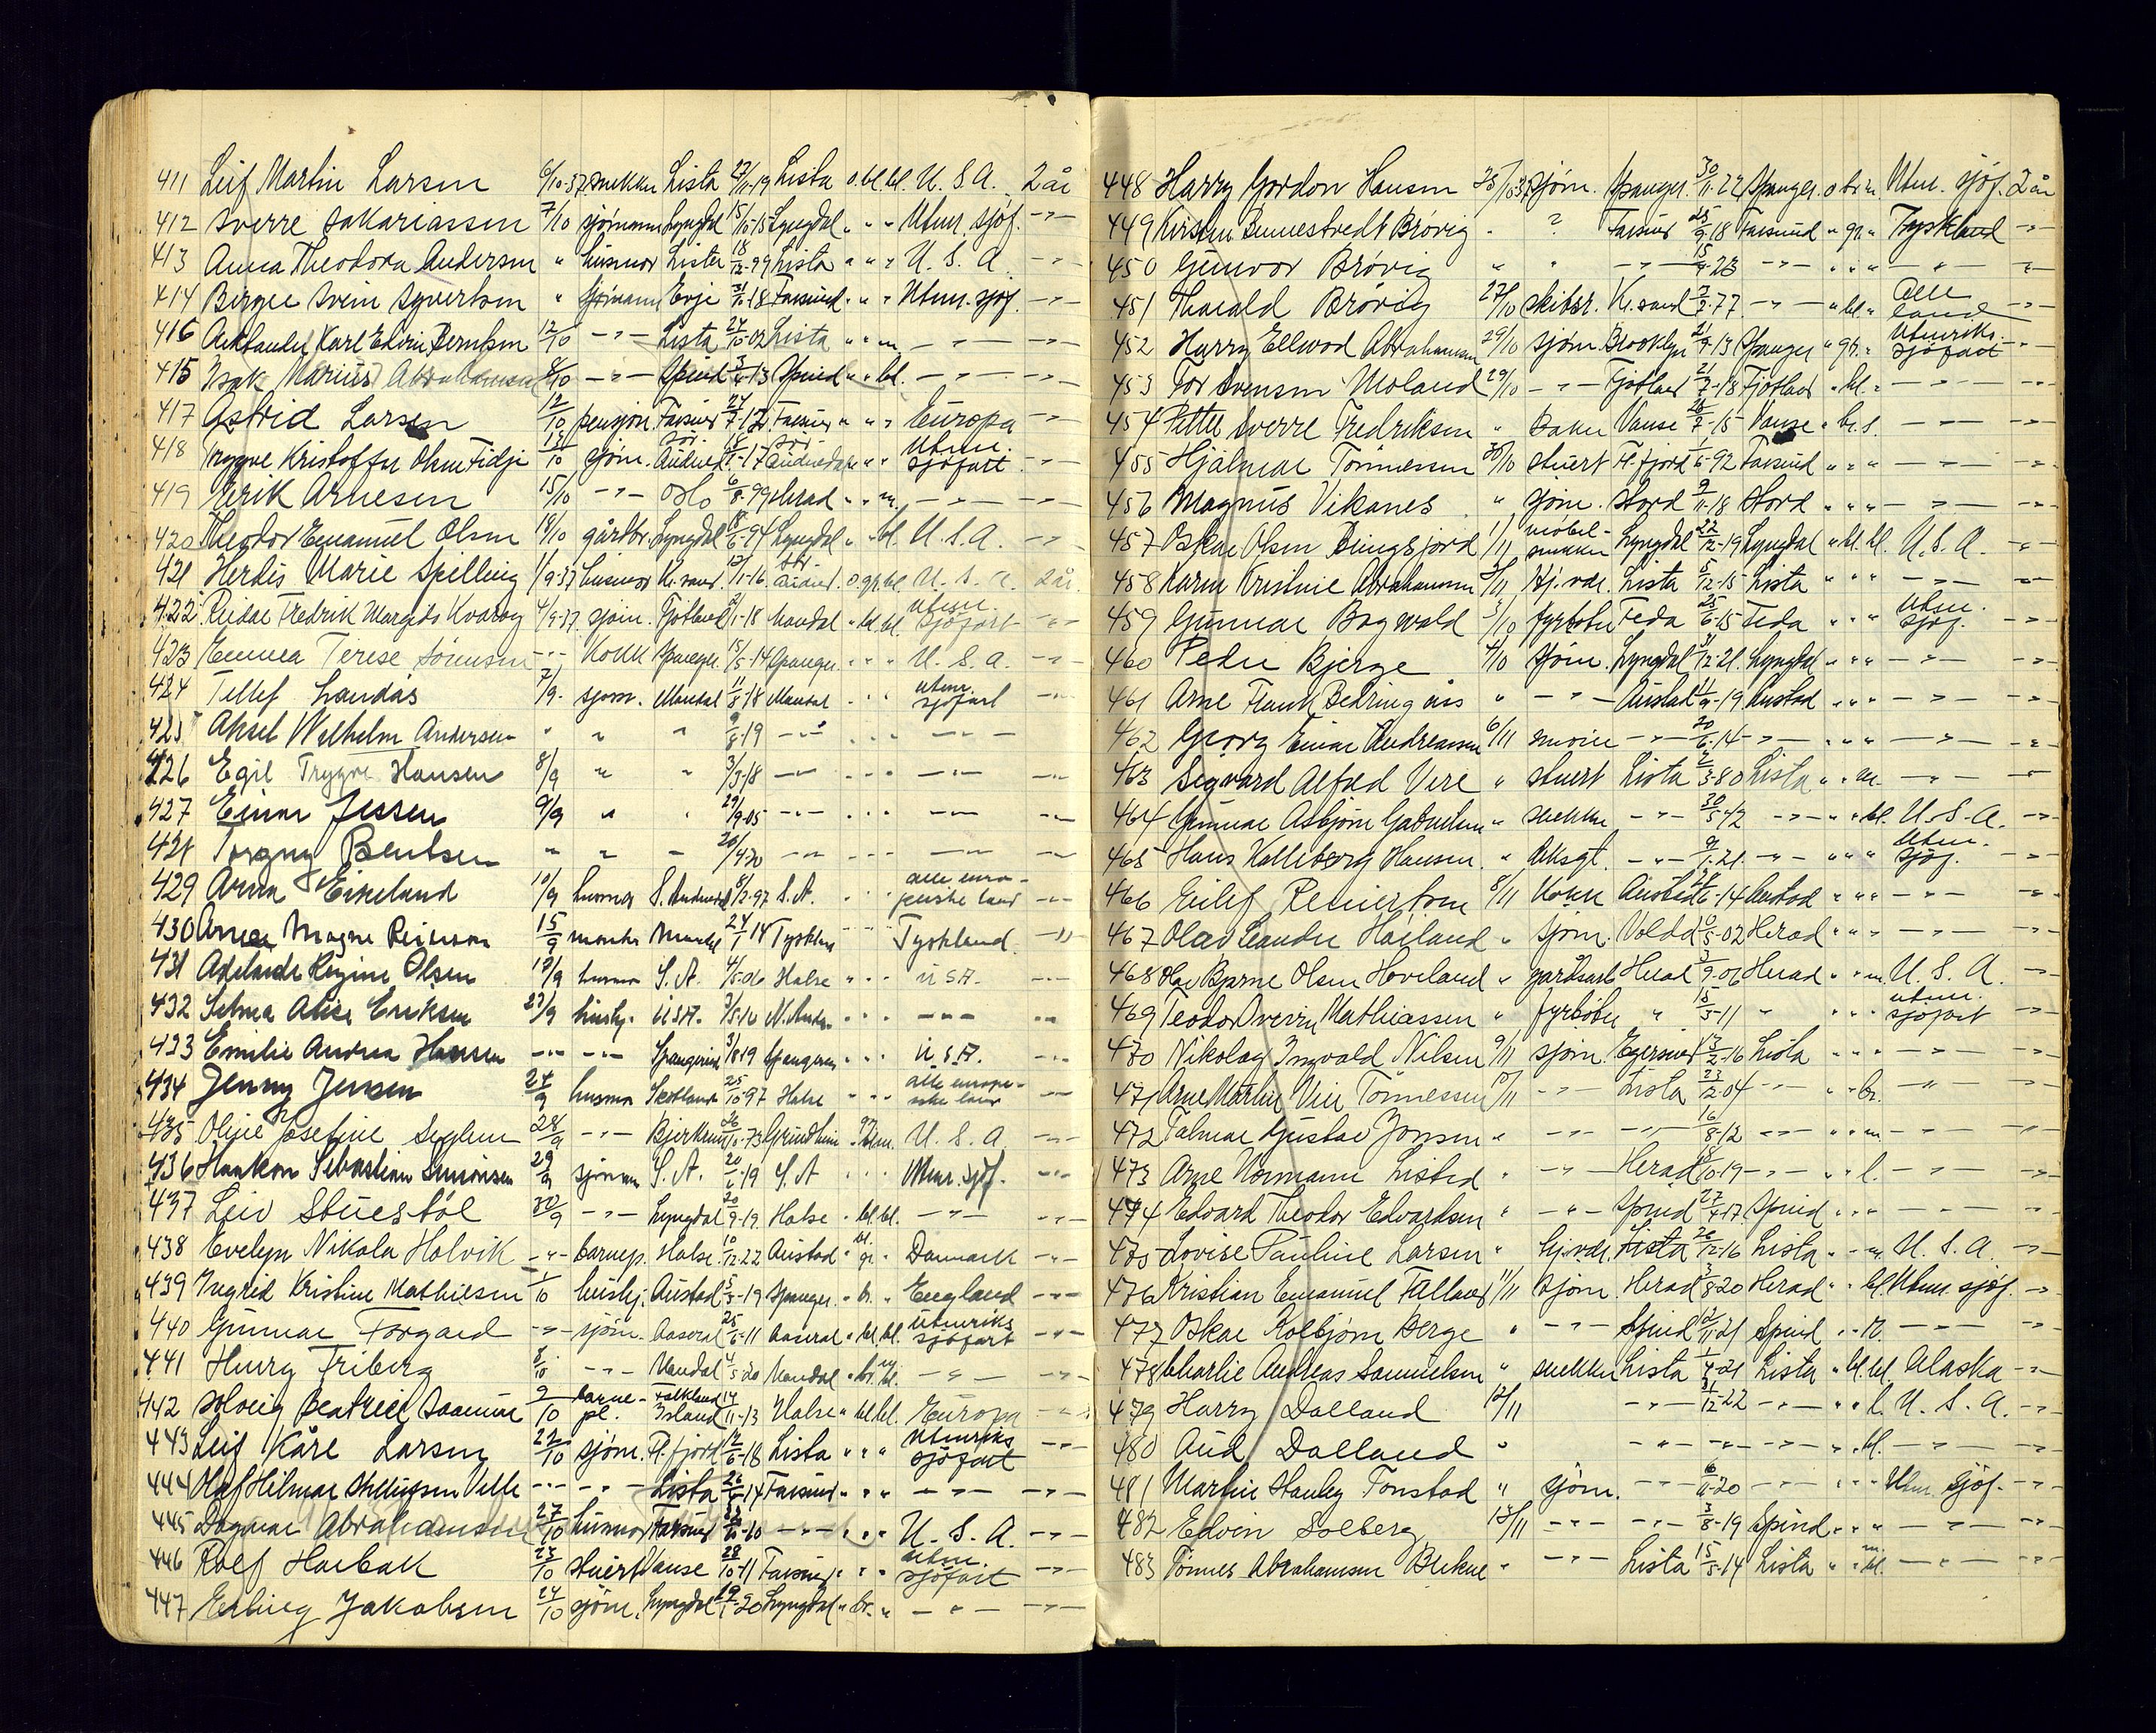 411 Leif Martin Larsen 6/10-37 snekker Lista 27/11-19 Lista o. bl. bl. U. S. A. 2 år
412 Sverre Sakariassen 7/10 sjömann Lyngdal 15/10-15 Lyngdal " " " Utenr. sjöf. -"-
413 Anna Theodora Andersen " husmor Lista 18/12-99 Lista " " " U. S. A. -"-
414 Birger Svein Syvertsen " sjömann Evje 18 Farsund " " " Utenr. sjöf. -"-
416 Karl Edvin Berntsen 12/10 -"- Lista 24/10-02 Lista " " m. -"- -"-
415 Isak Marius Abrahamsen 8/10 -"- Spind 13 Spind " " bl. -"- -"-
417 Astrid Larsen 12/10 pensjon. Farsund 24/7-12 Farsund " " " Europa -"-
418 Trygve Kristoffer Olsen Fidje 14/10 sjöm. Sör-Audned. 17 Sör-Audnedal " " " Utenr. sjöfart -"-
419 Erik Arnesen 15/10 -"- Oslo 6/8-99 Herad " " m. -"- -"-
420 Theodor Emanuel Olsen 18/10 gårdbr. Lyngdal 18/6-94 Lyngdal " " bl. U. S. A. -"-
421 Herdis Marie Spilling 1/9-37 husmor Kr.sand 12/1-16 Sör-Audned. o gr. bl. U. S. A. 2 år.
422 Reidar Fredrik Margido Kvaróy 4/9-37 sjöm. Fjotland 2/1-18 Mandal " bl. bl. Utenr. sjöfart -"-
423 Emma Terese Sörensen -"- kokk Spanger. 15/5-14 Spanger. " " " U. S. A. -"-
424 Tellef Landås 7/9. sjöm. Mandal 11/8-18 Mandal " " " utenr. sjöfart -"-
425 Aksel Wilhelm Andersen " " " 9/8-19 -"- " " " -"- -"-
426 Egil Trygve Hansen 8/9 " " 3/5-18 -"- " " " -"- -"-
427 Einar Jessen 9/9 " " 29/9-05 -"- " " " -"- -"-
428 Torgny Bentsen " " " 20/4-20 -"- " " " -"- -"-
429 Anna Eikeland 10/9 husmor S. Audnedal 8/2-97 S. A. " " alle euro-peiske land -"-
430 Magne 15/9 Mandal 24/1-14 Tyskland " " " Tyskland -"-
431 Adelaide Regine Olsen 18/9 husmor S. A. 4/5-06 Halse " " " U S A. -"-
432 Selma Alise Eriksen 23/9 hushj. U S A. 3/5-10 " " " -"- -"-
433 Emilie Andrea Hansen -"- -"- Spangereid 3/8-19 Spangereid " " " U. S. A. -"-
434 Jenny Jensen 24/9 husmor 25/10-97 Halse " " " alle europe-iske land -"-
435 Oline Josefine Seglem 28/9 -"- Bjerkreim 26/10-73 Grindheim U. S. A. -"-
436 Haakon Sebastian Simonsen 29/9 sjömann S. A. 20/6-19 S. A " " Utenr. sjöf. -"-
437 Leiv Stuestöl 30/9 -"- Lyngdal 20/9-19. Halse " bl. bl. -"- -"-
438 Evelyn Nikola Holvik -"- barnep. Halse 10/12-22 Austad " bl. gr. " Danmark -"-
439 Ingrid Kristine Mathiesen 1/10 hushj. Austad 5/3-19 Spanger. " br. " England -"-
440 Gunnar Forgard -"- sjöm. Aaseral 25/6-11 Aaseral " bl. bl. utenriks sjöfart -"-
441 Henry Friberg 8/10 -"- Mandal 4/5-20 Mandal " br. bl. -"- -"-
442 Solveig Beatrice 9/10 barne-pl. Falkland Island 14/11-13 Halse " bl. bl. Europa -"-
443 Leif Kåre Larsen 22/10 sjöm. Fl.fjord 12/6-18 Lista " " " Utenriks sjöfart -"-
444 Olaf Hilmar Velle -"- -"- Lista 14 Farsund " " " -"- -"-
445 Dagmar Abrahamsen 27/10 husmor Farsund 10 -"- " " " U. S. A. -"-
446 Rolf Harbak 23/10 stuert Vanse 28/10-11 Farsund " " " Utenr. sjöfart -"-
447 Erling Jakobsen 24/10 sjöm. Lyngdal 19/1-20 Lyngdal " br. " -"- -"-
448 Harry Gordon Hansen 25/10-37 sjöm. Spanger. 30/11-22 Spanger. o br. m. Utenr. sjöf. 2 år
449 Kirsten Bennestvedt Brövig " ? Farsund 25/9-18 Farsund " gr. " Tyskland -"-
450 Gunvor Brövig " " -"- 15/4-23 -"- " " " -"- -"-
451 Harald Brövig 27/10 skibsr. Kr.sand 7/2-77 -"- " bl. " Alle land -"-
452 Harry Ellwood Abrahamsen 29/10 sjöm. Brooklyn 21/9-13 Spanger " gr. " Utenriks-sjöfart -"-
453 Tor Svensen Moland 29/10 -"- Fjotland 21/7-18 Fjotland " bl. " -"- -"-
454 Petter Sverre Fredriksen " Vanse 26/7-15 Vanse " br. s. -"- -"-
455 Hjalmar Tönnessen 30/10 stuert Fl.fjord 1/6-92 Farsund " " " -"- -"-
456 Magnus Vikanes " sjöm. Stord 9/11-18 Stord " " " -"- -"-
457 Oskar Olsen Bringsjord 1/11 möbel-snekker Lyngdal 22/12-19 Lyngdal " bl. bl. U. S. A. -"-
458 Karen Kristine Abrahamsen 2/11 Hj. vdr. Lista 5/12-15 Lista " " " -"- -"-
459 Gunnar Bogwald 3/10 fyrböter Feda 25/6-15 Feda " " " Utenr. sjöf. -"-
460 Peder Bjerge 4/10 sjöm. Lyngdal 31/12-21. Lyngdal " " " -"- -"-
461 Arne Frank Bedringås " -"- Austad 11/9-19 Austad " " " -"- -"-
462 Georg Einar Andreassen 6/11 -"- 20/6-14 -"- " " " -"- -"-
463 Sigvard Alfred Vere " stuert Lista 2/3-80 Lista " " m. -"- -"-
464 Gunnar Asbjörn Gabrielsen " snekker -"- 30/5-12 -"- " " bl. U. S. A. -"-
465 Hans Kalleberg Hansen " -"- 9/1-21. -"- " " " Utenr. sjöf. -"-
466 Eilef Reiersen 8/11 Kokk Austad 14 Austad " " " -"- -"-
467 Olav Leander Håiland " sjöm. 02 Herad " " " -"- -"-
468 Bjarne Olsen Hoveland " gårdsarb. Herad 3/9-06 Herad " " m. U. S. A. -"-
469 Teodor Mathiassen " fyrböter " 15/5-11 " " " " utenr. sjöfart -"-
470 Nikolay Ingvald Nilsen 9/11 sjöm. Egersund 13/2-16 Lista " " " -"- -"-
471 Arne Martin Vere Tönnessen 10/11 -"- Lista 23/2-04 -"- " " br. -"- -"-
472 Talmar Gustav Jonsen " -"- -"- 16/8-12 -"- " " m. -"- -"-
473 Arne Normann Listad " -"- Herad 18/10-19 -"- " " l. -"- -"-
474 Edvard Theodor Edvardsen " -"- Spind 27/4-17 Spind " " " -"- -"-
475 Lovise Pauline Larsen " hj. vdr. Lista 26/12-16 Lista " " m. U. S. A. -"-
476 Kristian Emanuel 11/11 sjöm. Herad 3/8-20 Herad " " bl. Utenr. sjöf. -"-
477 Oskar Kolbjörn Berge " -"- Spind 12/11-21 Spind " " -"- -"-
478 Charlie Andreas Samuelsen " snekker Lista 1/4-21 Lista " bl. bl. Alaska -"-
479 Harry Dalland 12/11 -"- 31/12-22 -"- " " l. U. S. A. -"-
480 Aud Dalland " -"- -"- -"- " " bl. -"- -"-
481 Martin Stanley Fonstad " sjöm. -"- 20 -"- " " " Utenr. sjöf. -"-
482 Edvin Solberg 13/11 -"- -"- 3/8-19 Spind " " " -"- -"-
483 Tönnes Abrahamsen " -"- Lista 15/5-14 Lista " " bl. -"- -"-